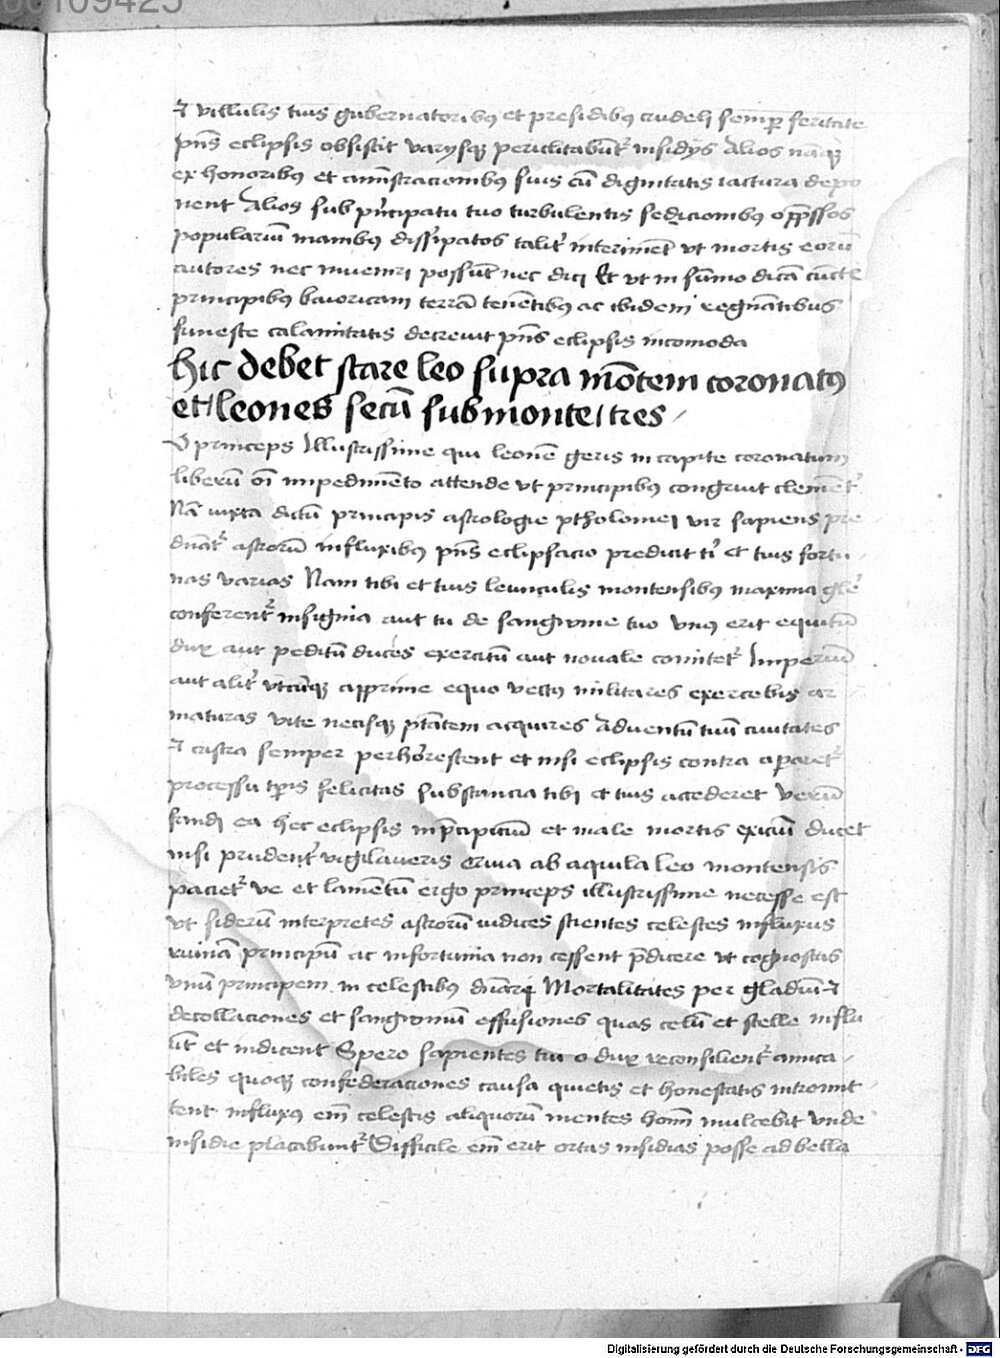 00109425
⁊ villulis tuis gubernatoribꝰ et presidibꝰ crudelj semꝑ feritate
pn̄s eclipsis obsistit varijsqꝫ periclitabūt᷑ insidijs Alios nāqꝫ
ex honoribꝰ et am̄straciombꝰ suis cū dignitatis iactura depo
nent Alios sub pn̄cipatu tuo turbulentis sedicionibꝰ opp̄ssos
popularium manibꝰ dissipatos talit᷑ interimēt vt mortis eorū
autores nec inueniri possūt nec dici Et vt in sūmo dicā cūcte
principibꝰ bauoricam terrā tenētibꝰ ac ibidem regnātibus
funeste calamitatis decreuit pn̄s eclipsis incomoda
hic debet stare leo supra mōtem coronatꝰ
et leones secū sub monte tres
O princeps Illustrissime qui leonē geris in capite coronatum
liberū oī impedimēto attende vt principibꝰ congruit clemēt᷑
Nā iuxta dictū principis astrologie ptholomej vir sapiens
astrorū influxibꝰ pn̄s eclipsacio predicit t' et tuis fortu
nas varias Nam tibi et tuis leunculis montensibus maxima
conferent᷑ insignia aut tu de sangwine tuo vnꝰ erit equitū
dux aut peditū duces exercitū aut nouale comitet᷑ Imperiū
aut alit᷑ vtcūqꝫ apprime equo vectꝰ militares exercebis ar
maturas vite necisqꝫ ptātem acquires Aduentū tuū ciuitates
⁊ castra semper perhorrescent et nisi eclipsis contra aparet᷑
processu tꝑis felicitas substancia tibi et tuis accederet verū
ea hec eclipsis in p̄cipiciū et male mortis exiciū ducet
nisi prudent᷑ vigilaueris ab aquila leo montensis
paciet᷑ ve et lamētū ergo princeps illustrissime necesse est
vt siderū interpretes astrorū iudices scientes celestes influxus
ruinā principū ac infortunia non cessent p̄dicere vt cognoscas
vnū principem in celestibꝰ Mortalitates per gladiū ⁊
decollaciones et sangwinū effusiones quas celū et stelle influ
ūt et indicent Spero sapientes tui o dux reconsilient᷑ amica
biles quoqꝫ confederaciones causa quietis et honestatis intromit
tent influxꝰ em̄ celestis aliquorū mentes hoīm mulcebit vnde
insidie placabunt᷑ Difficile em̄ erit ortas insidias posse ad bella
Digitalisierung gefördert durch die Deutsche Forschungsgemeinschaft - DFG